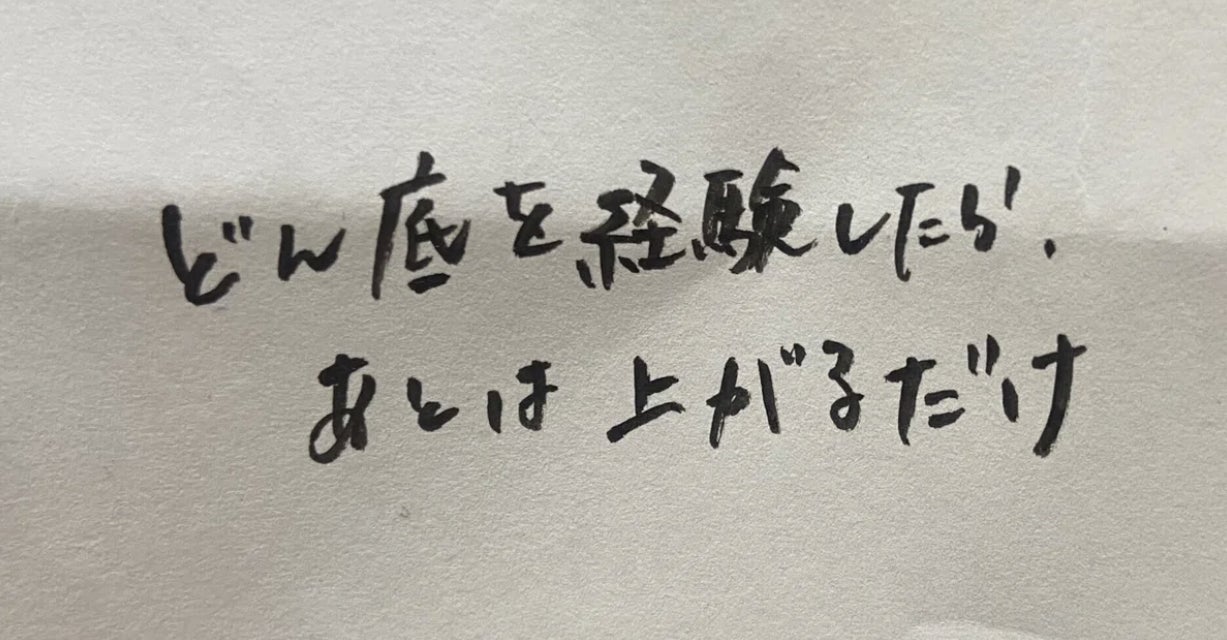 どん底を経験したら、
あとは上がるだけ